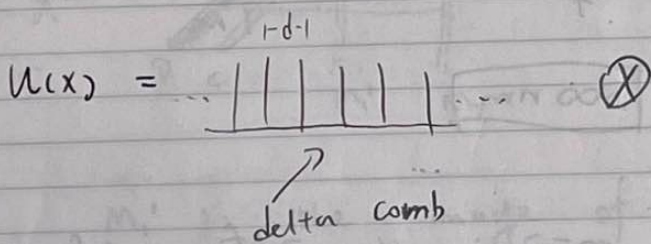 1-d-1
u(x) = ... ... ⊗
...
delta comb